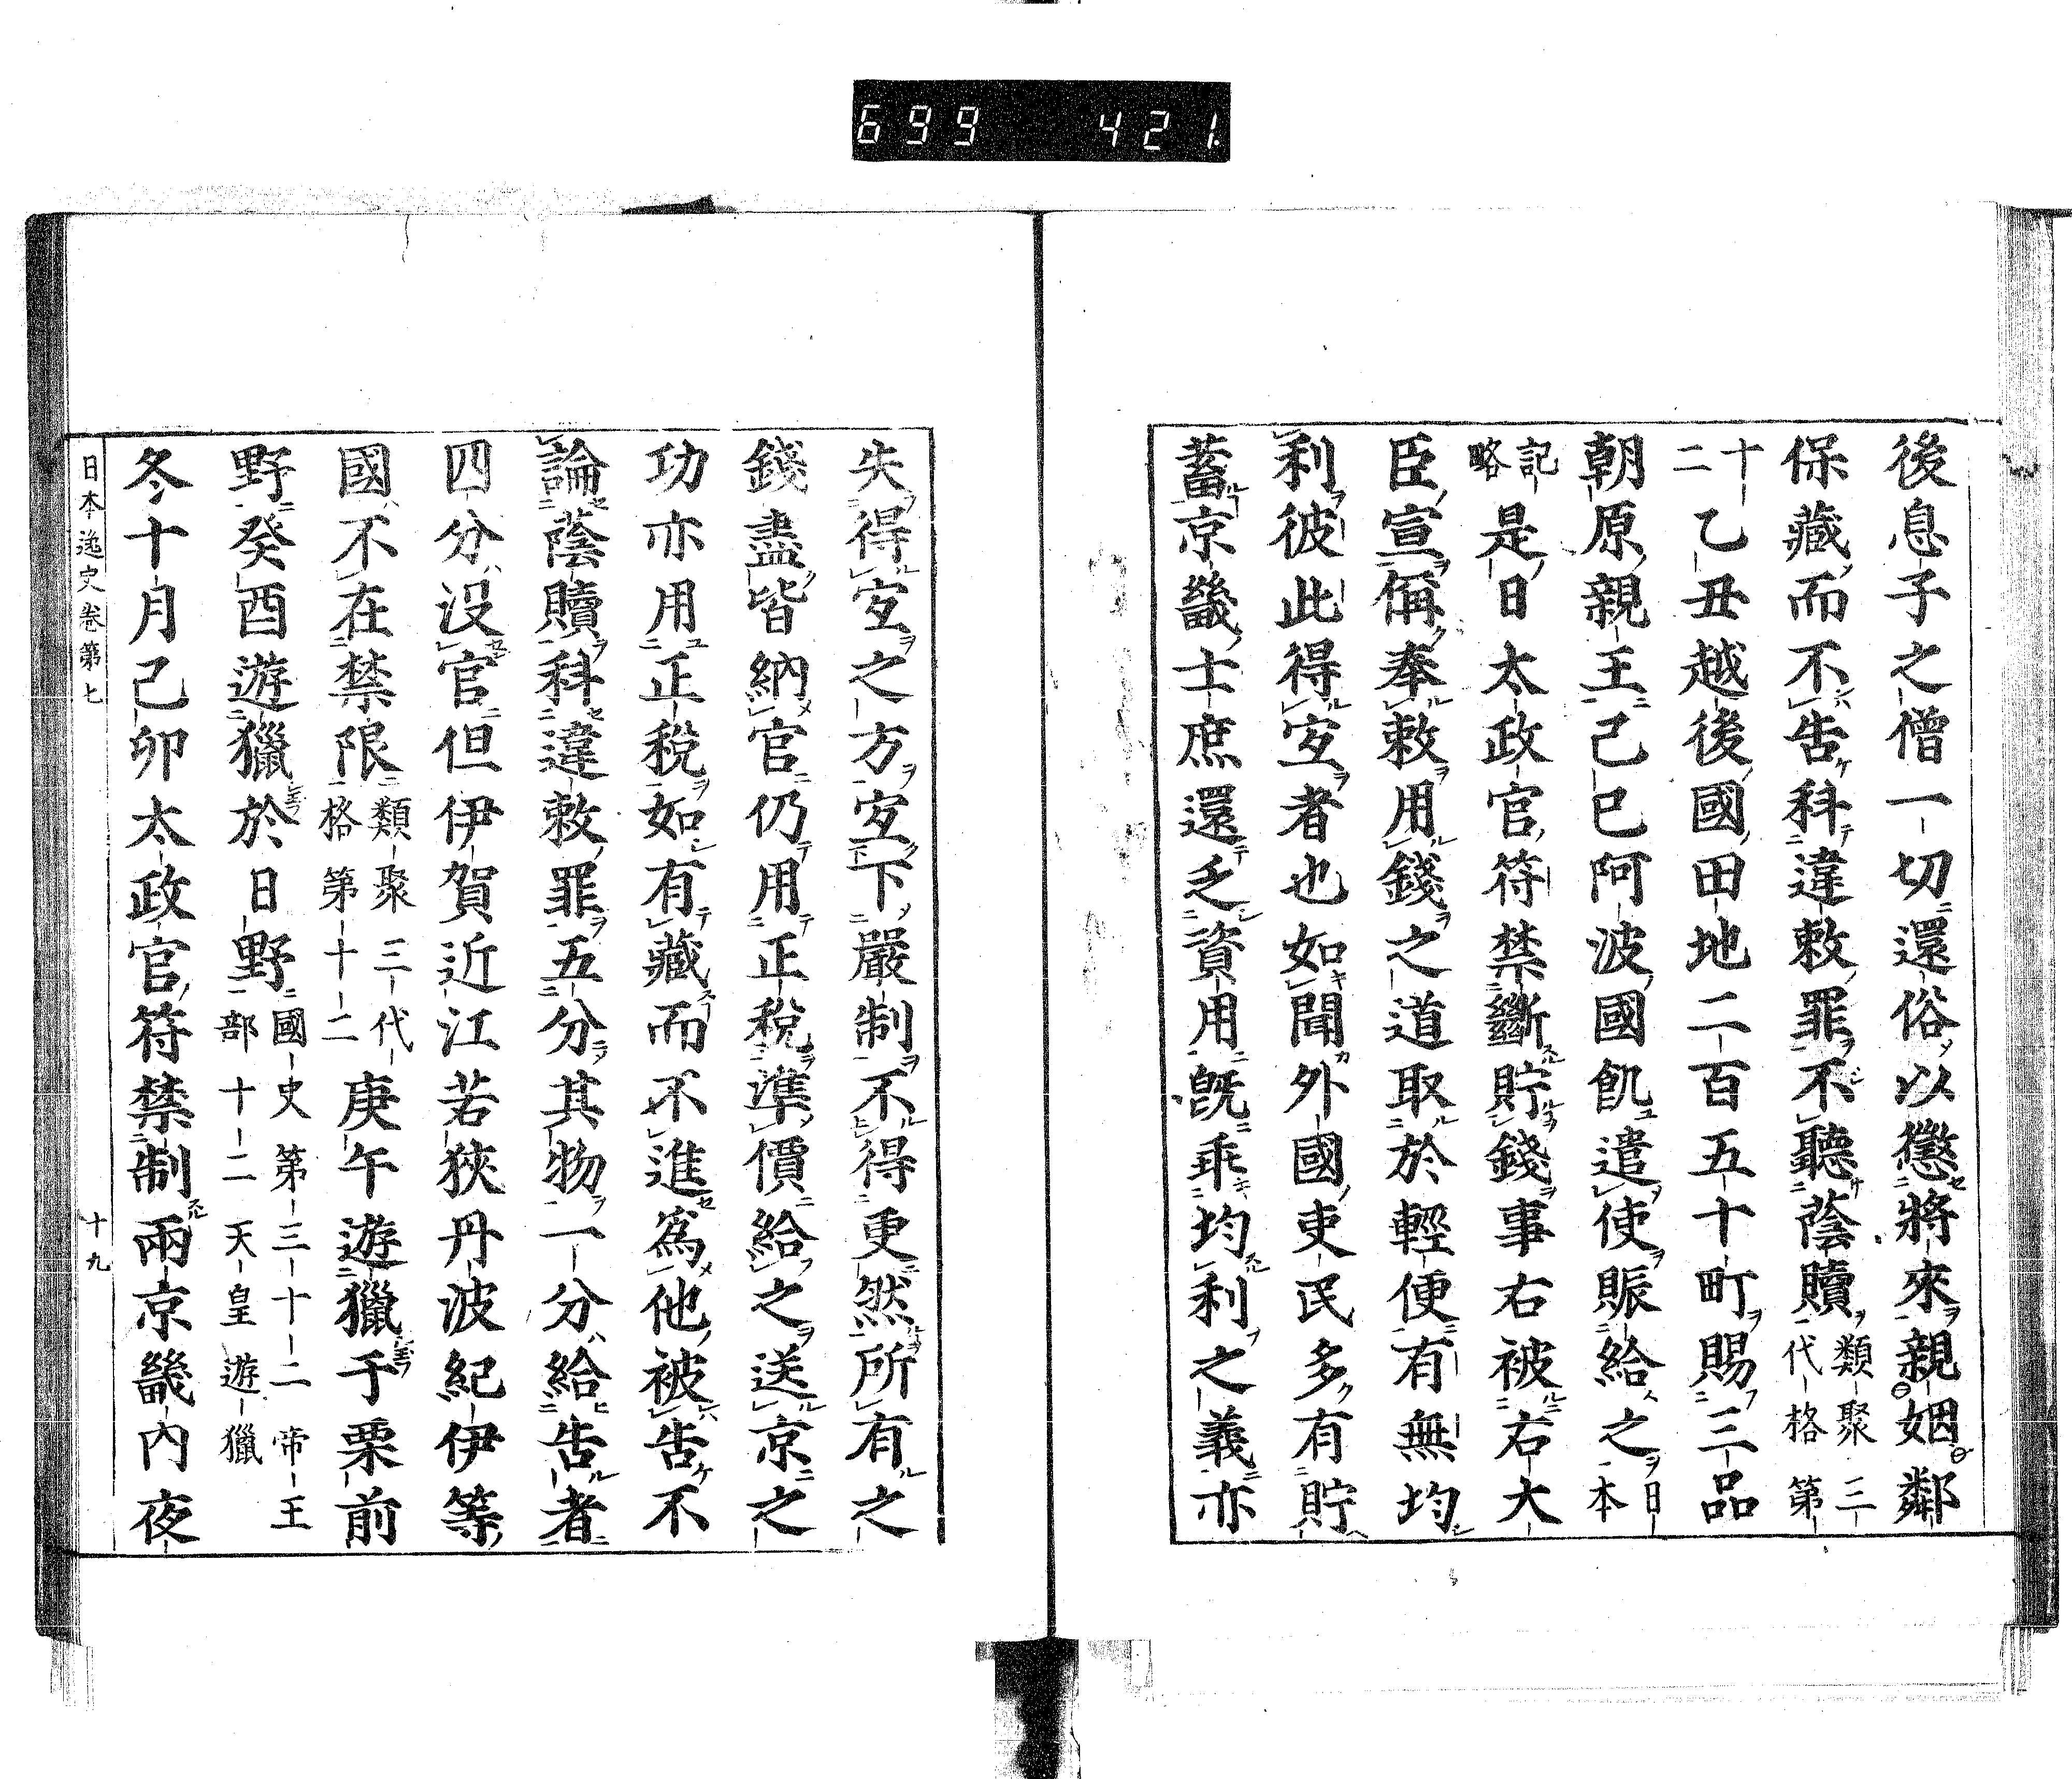 699 421
後息子之僧一切還俗以懲將來親姻鄰
保藏而不告科違敕罪不聽蔭贖類聚三代格第
十二乙丑越後國田地二百五十町賜三品
朝原親王己巳阿波國飢遣使賑給之日本
記略是日太政官符禁斷貯錢事右被右大
臣宣偁奉敕用錢之道取於輕便有無均
利彼此得宐者也如聞外國吏民多有貯
蓄京畿士庶還乏資用既乖均利之義亦
失得宐之方宐下嚴制不得更然所有之
錢盡皆納官仍用正稅準價給之送京之
功亦用正稅如有藏而不進為他被告不
論蔭贖科違敕罪五分其物一分給告者
四分没官但伊賀近江若狹丹波紀伊等
國不在禁限類聚三代格第十二庚午遊獵于栗前
野癸酉遊獵於日野國史第三十二帝王部十二天皇遊獵
冬十月己卯太政官符禁制兩京畿內夜
日本逸史卷第七 十九